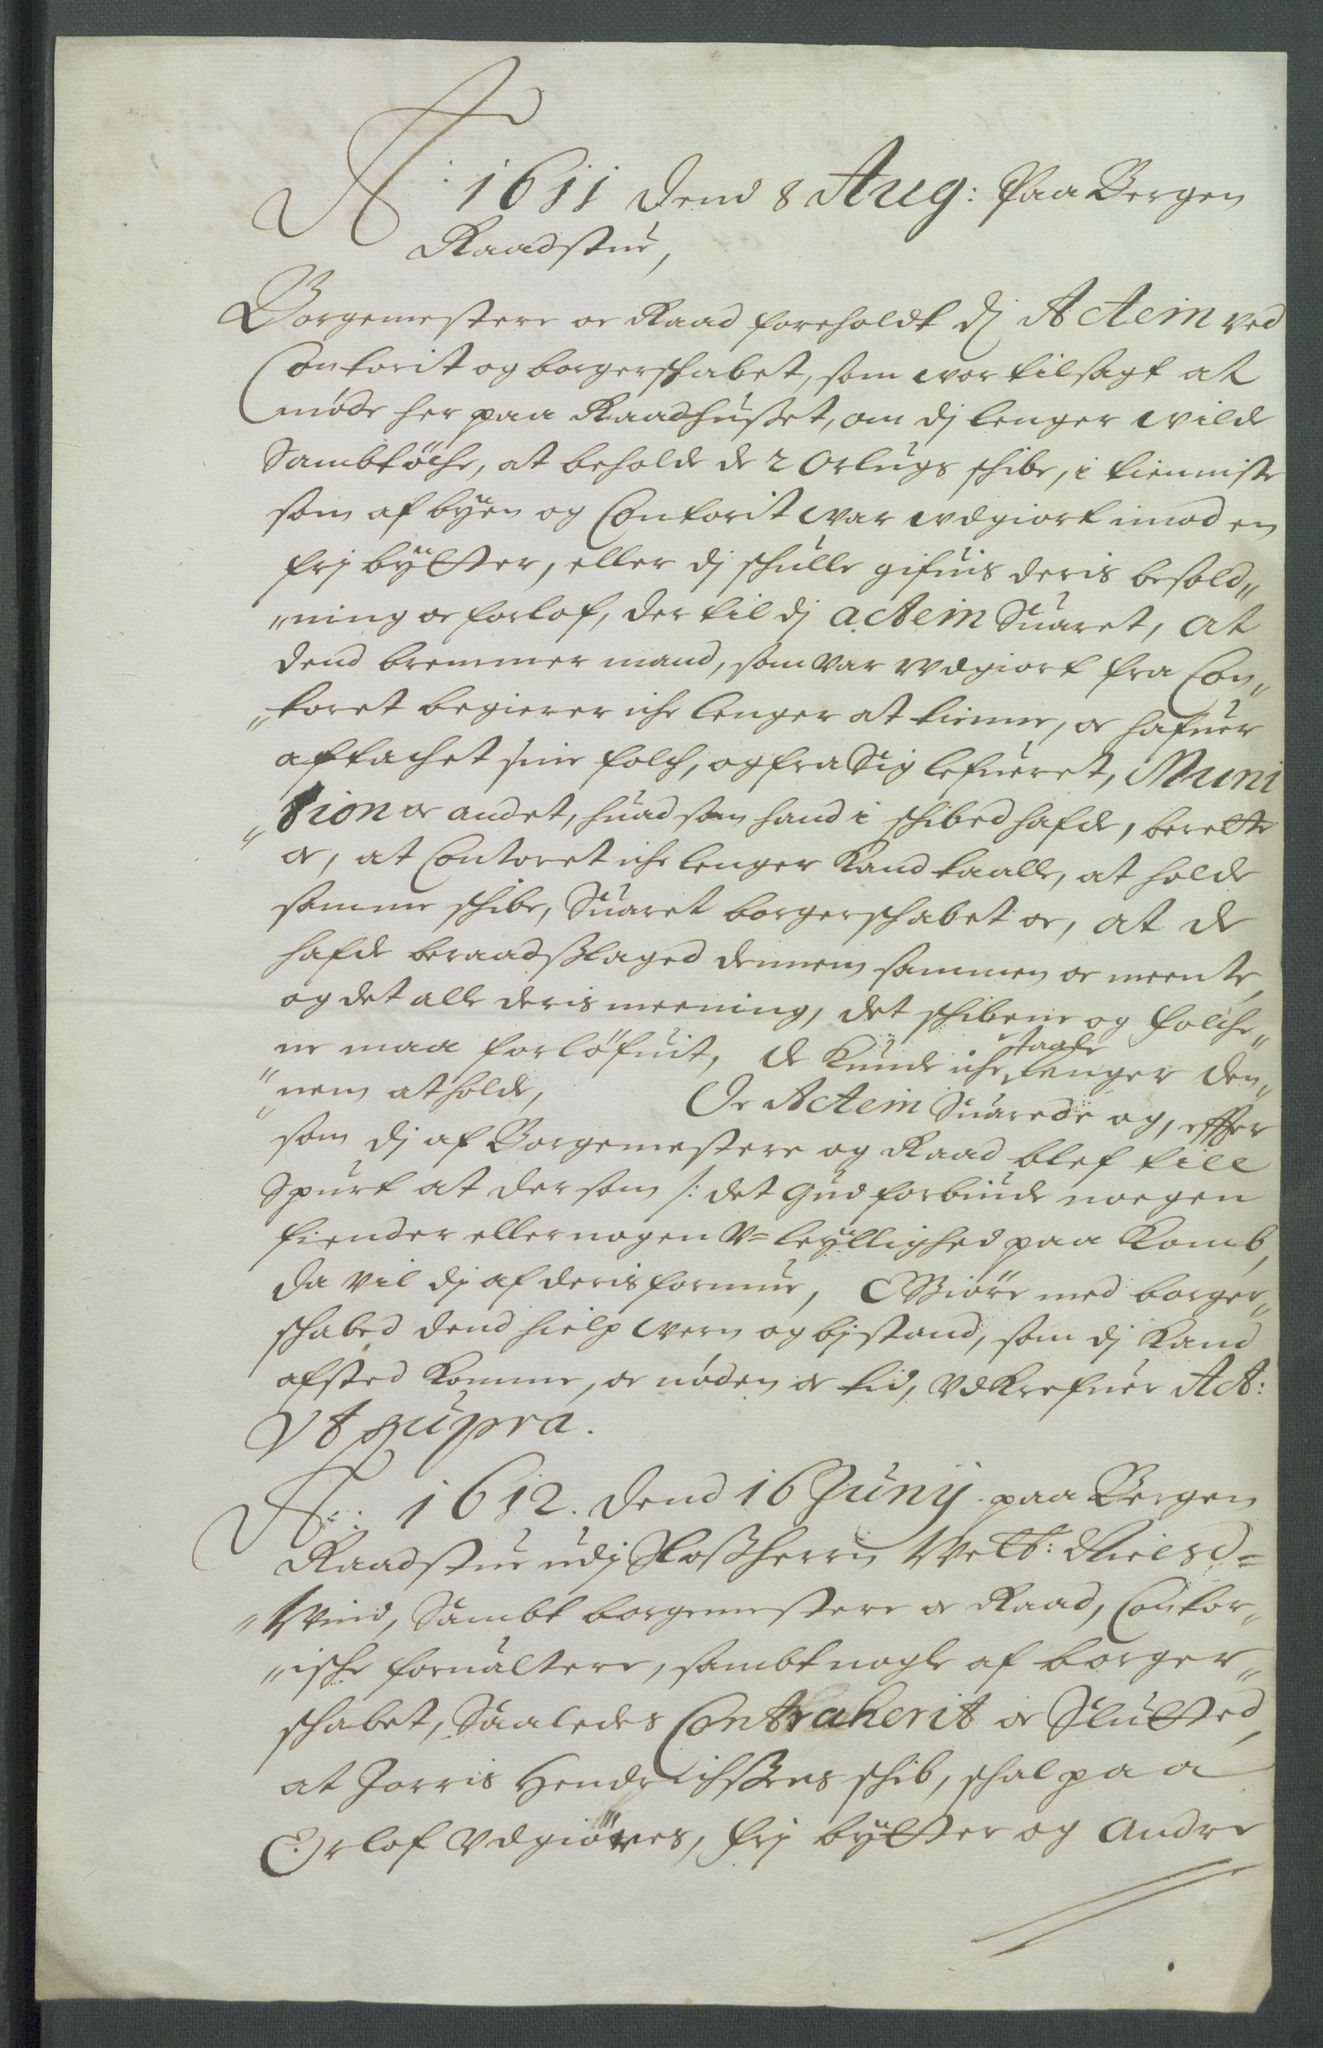 A: 1611 Dend 8 Aug: Paa Bergen
Raadstue,
Borgemestere oc Raad foreholdt dj Actein ved
Contorit og borgerschabet, som wor tilsagt at
møde her paa Raadhusset, om dj lenger wilde
Sambtøche, at beholde de 2 Orlugs schibe, i tienniste
som af byen og Contorit war wdgiort imod en
frj bytter, eller dj schulle gifuis deris besold„
„ning oc forlof, der til dj actein Suaret, at
dend bremmer mand, som var wdgiort fra Con„
„toret begierer iche lenger at tienne, oc hafuer
aftachet sine folch, og fra Sig lefueret, Muni
„tion oc andet, huad som hand i schibed hafde, berette
oc, at Contoret iche lenger kand taalle, at holde
samme schibe, Suaret borgerschabet oc, at de
hafde beraadslaged dennem sammen oc meente,
og det alle deris meening, det schibene og folche„
„ne maa forløfuit, de kunde iche lenger den„
„nem at holde, Oc Actein Suarede og, effter
som dj af Borgemestere og Raad blef till
Spurt at dersom /: det Gud forbiude noegen
fiender eller nogen V= leyllighed paa komb,
da vil dj af deris formue, Giøre med borger„
schabed dend hielp wern og bjstand, som dj kand
afsted komme, oc nøden oc tid, vdkrefuer Act:
Vt supra.
A: 1612. Dend 16 Junij paa Bergen
Raadstue udj Slossherrn Welb: Nielsd=
„Wind, Sambt borgemestere oc Raad, Contor„
„ische foruältere, sambt nogle af borger„
schabet, Saaledes Contraherit oc Slutted,
at Jorris Hendrichssens schib, schal paa
Orlof vdgiøres, frj bytter og andre